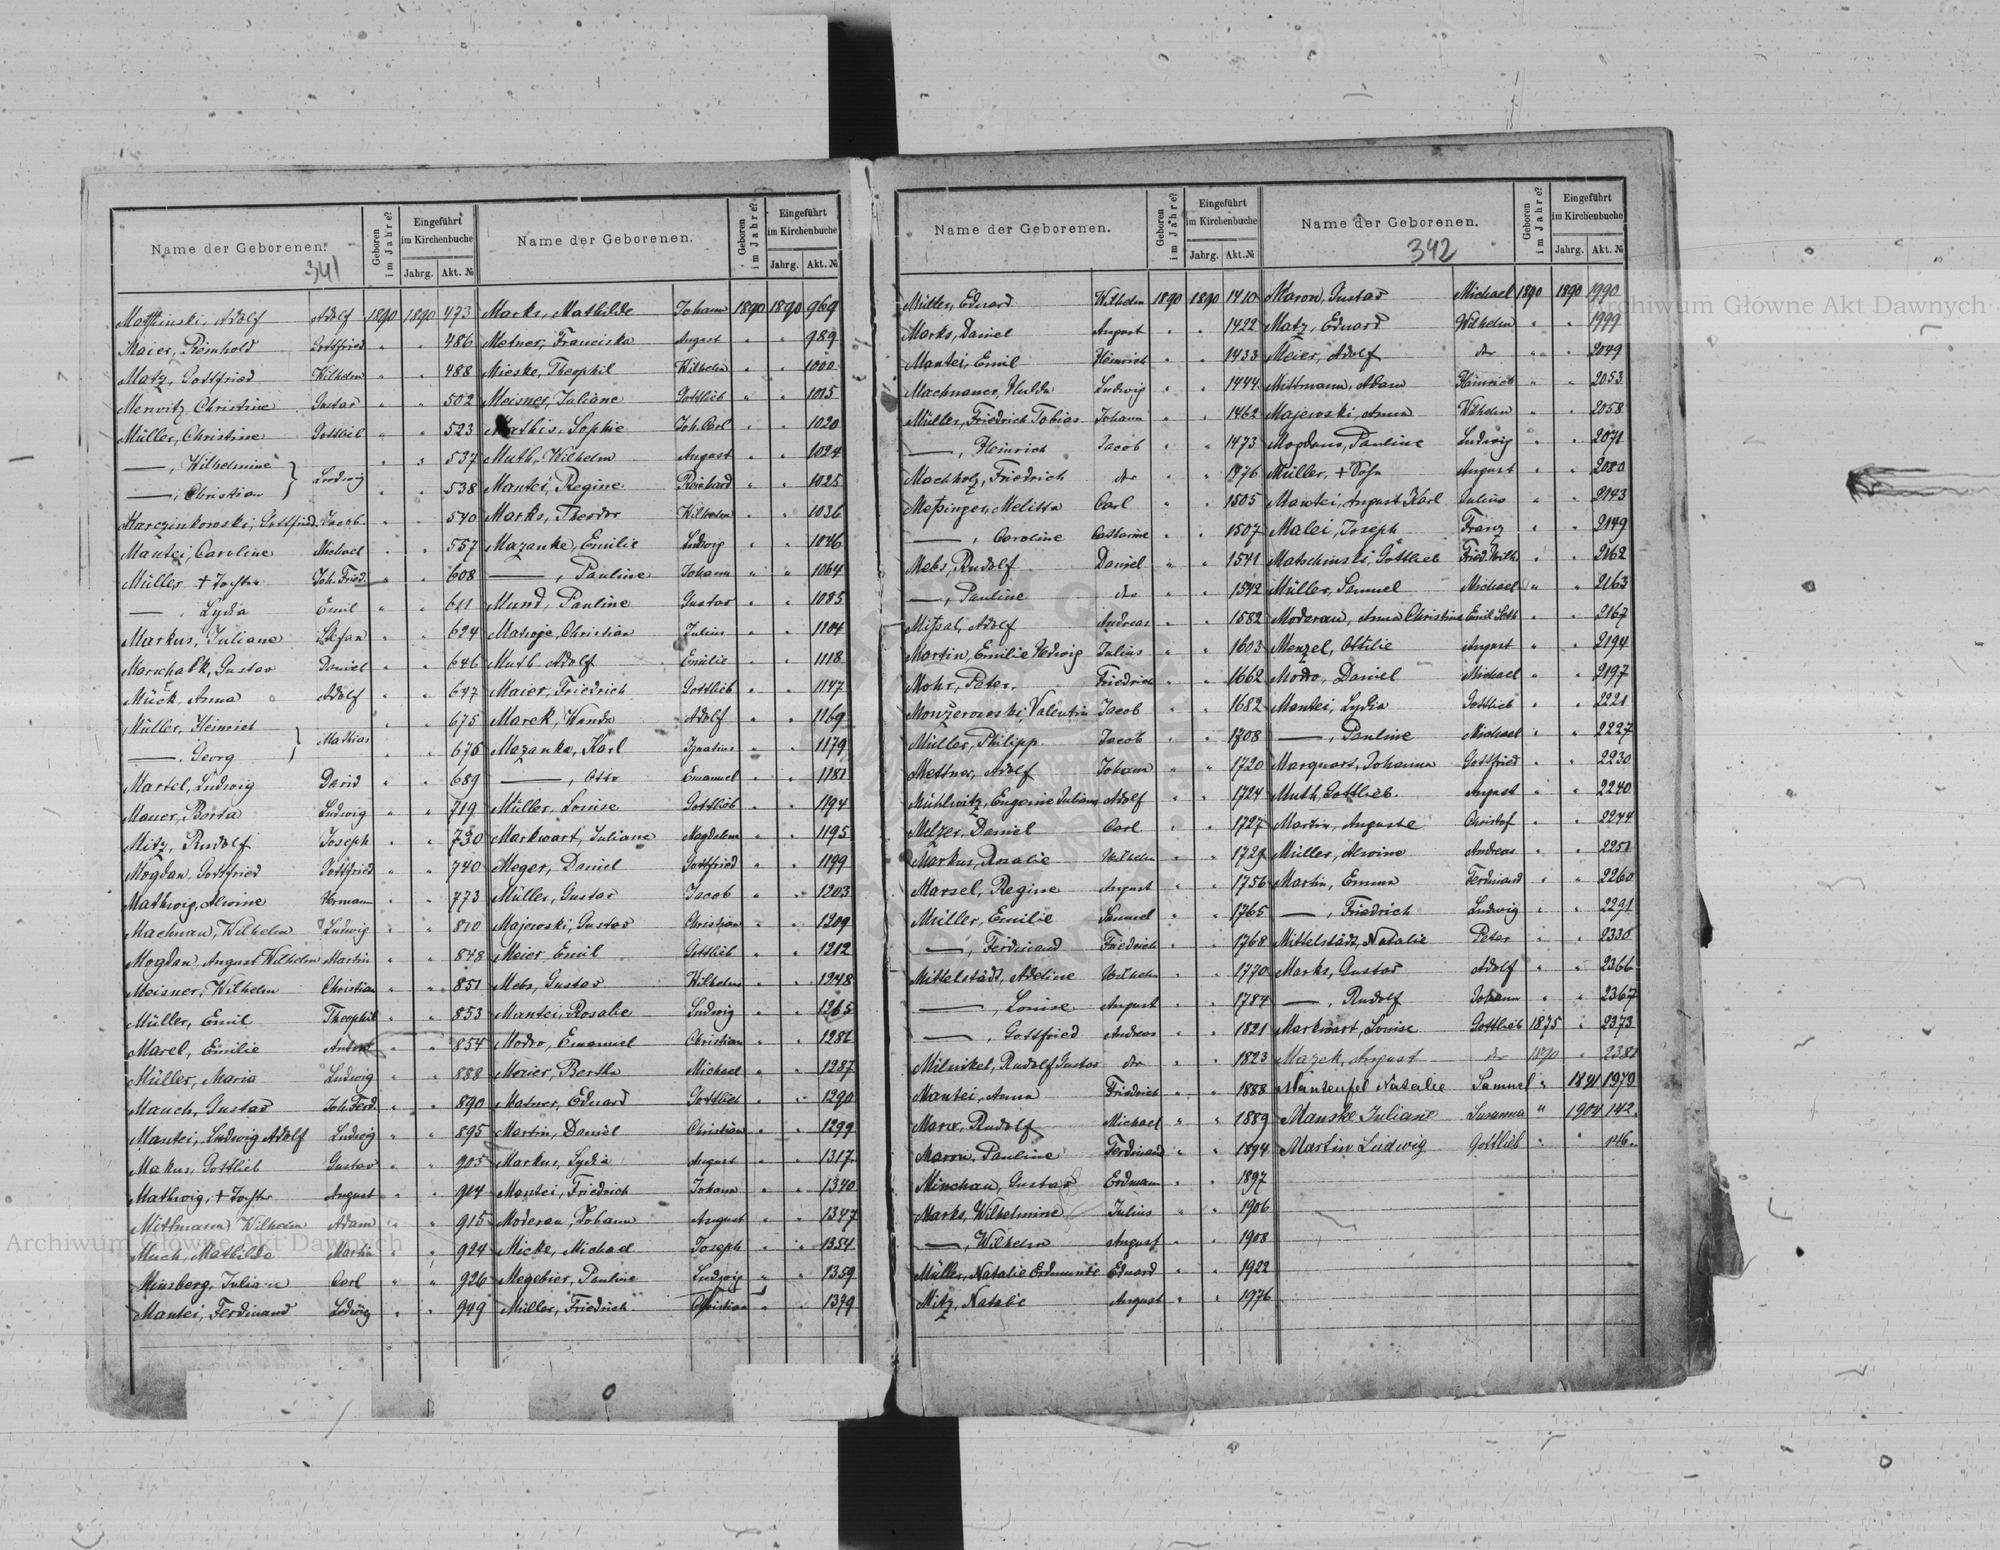 Name der Geborenen.
341
Geboren im Jahre?
Eingeführt im Kirchenbuche
Jahrg. Akt. №
Adolf 1890 1890 473
Maier, Reinhold Gottfried " " 486
Matz, Gottfried Wilhelm " " 488
Merwitz, Christine Gustav " " 502
Müller, Christine Gottlieb " " 523
—, Wilhelmine " " 537
—, Christian Ludwig " " 538
Jacob " " 540
Mantei, Caroline Michael " " 557
Müller, + Tochter Joh. Fried. " " 608
—, Lydia Emil " " 611
Markus, Juliane Stefan " " 624
Marschalk, Gustav Daniel " " 646
Mück, Anna Adolf " " 647
Müller, Heinrich " " 675
—, Georg Mathias " " 676
Martel, Ludwig David " " 689
Mauer, Berta Ludwig " " 719
Mitz, Rudolf Joseph " " 730
Mogdan, Gottfried Gottfried " " 740
Mathwig, Alwine Hermann " " 773
Machnau, Wilhelm Ludwig " " 810
Mogdan, August Wilhelm Martin " " 848
Meisner, Wilhelm Christian " " 851
Müller, Emil Theophil " " 853
Marel, Emilie " " 854
Müller, Maria Ludwig " " 888
Mauch, Gustav Joh. Ferd. " " 890
Mantei, Ludwig Adolf Ludwig " " 895
Makus, Gottlieb Gustav " " 905
Mathwig, + Tochter August " " 914
Mittmann, Wilhelm Adam " " 915
Much, Mathilda Martin " " 924
Minsberg, Juliane Carl " " 926
Mantei, Ferdinand Ludwig " " 949
Name der Geborenen.
Geboren im Jahre?
Eingeführt im Kirchenbuche
Jahrg. Akt. №
Marks, Mathilde Johann 1890 1890 969
Metner, Franciska August " " 989
Mieske, Theophil Wilhelm " " 1000
Meisner, Juliane Gottlieb " " 1015
Mathis, Sophie Joh. Carl " " 1020
Muth, Wilhelm August " " 1024
Mantei, Regine Reinhard " " 1025
Marks, Theodor Wilhelm " " 1036
Mazanke, Emilie Ludwig " " 1046
—, Pauline Johann " " 1064
Mund, Pauline Gustav " " 1085
Christian Julius " " 1104
Muth Adolf Emilie " " 1118
Maier, Friedrich Gottlieb " " 1147
Marek, Wanda Adolf " " 1169
Mazanke, Karl Ignatius " " 1179
—, Otto Emanuel " " 1181
Müller, Louise Gottlieb " " 1194
Markwart, Juliane Magdalena " " 1195
Meger, Daniel Gottfried " " 1199
Müller, Gustav Jacob " " 1203
Majewski, Gustav Christian " " 1209
Meier, Emil Gottlieb " " 1212
Mebs, Gustav Wilhelm " " 1248
Mantei, Rosalie Ludwig " " 1265
Modro, Emanuel Christian " " 1286
Meier, Bertha Michael " " 1287
Matner, Eduard Gottlieb " " 1290
Martin, Daniel Christian " " 1299
Markus, Lydia August " " 1317
Mantei, Friedrich Johann " " 1340
Moderau, Johann August " " 1347
Micke, Michael Joseph " " 1354
Megebier, Pauline Ludwig " " 1359
Müller, Friedrich Christian " " 1379
Name der Geborenen.
Geboren im Jahre?
Eingeführt im Kirchenbuche
Jahrg. Akt. №
Müller, Eduard Wilhelm 1890 1890 1410
Marks, Daniel August " " 1422
Mantei, Emil Heinrich " " 1433
Machnauer, Hulda Ludwig " " 1444
Müller, Friedrich Tobias Johann " " 1462
—, Heinrich Jacob " " 1473
Machholz, Friedrich der " " 1476
Meßinger, Melitta Carl " " 1505
—, Caroline Catharine " " 1507
Mebs, Rudolf Daniel " " 1541
—, Pauline der " " 1542
Mißal, Adolf Andreas " " 1582
Martin, Emilie Hedwig Julius " " 1603
Mohr, Peter Friedrich " " 1662
Valentin Jacob " " 1682
Müller, Philipp Jacob " " 1708
Mettner, Adolf Johann " " 1720
Mühlwitz, Eugenie Juliane Adolf " " 1724
Melzer, Daniel Carl " " 1727
Markus, Rosalie Wilhelm " " 1729
Marsel, Regine August " " 1756
Müller, Emilie Samuel " " 1765
—, Ferdinand Friedrich " " 1768
Mittelstädt, Adeline Wilhelm " " 1770
—, Louise August " " 1784
—, Gottfried Andreas " " 1821
Milnikel, Rudolf Gustav der " " 1823
Mantei, Anna Friedrich " " 1888
Rudolf Michael " " 1889
Pauline Ferdinand " " 1894
Minchau, Gustav Erdmann " " 1897
Marks, Wilhelmine Julius " " 1906
—, Wilhelm August " " 1908
Müller, Natalie Erdmunde Eduard " " 1922
Mitz, Natalie August " " 1976
Name der Geborenen.
342
Geboren im Jahre?
Eingeführt im Kirchenbuche
Jahrg. Akt. №
Maron, Gustav Michael 1890 1890 1990
Matz, Eduard Wilhelm " " 1999
Meier, Adolf der " " 2049
Mittmann, Adam Heinrich " " 2053
Majewski, Anna Wilhelm " " 2058
Mogdans, Pauline Ludwig " " 2071
Müller, + Sohn August " " 2080
Mantei, August Karl Julius " " 2143
Malei, Joseph Franz " " 2149
Matschinski, Gottlieb Fried. Wilh. " " 2162
Müller, Samuel Michael " " 2163
Moderau, Anna Christine Emil Seth " " 2167
Menzel, Ottilie August " " 2194
Modro, Daniel Michael " " 2197
Mantei, Lydia Gottlieb " " 2221
—, Pauline Michael " " 2227
Marquart, Johanna Gottfried " " 2230
Muth, Gottlieb August " " 2240
Martin, Auguste Christof " " 2244
Müller, Alwine Andreas " " 2251
Martin, Emma Ferdinand " " 2260
—, Friedrich Ludwig " " 2291
Mittelstädt, Natalie Peter " " 2336
Marks, Gustav Adolf " " 2366
—, Rudolf Johann " " 2367
Markwart, Louise Gottlieb 1875 " 2373
Mazek, August der 1890 " 2381
Manteufel Natalie Samuel " 1891 1979
Manske Juliane Susanna " 1904 142
Martin Ludwig Gottlieb " " 146
Archiwum Główne Akt Dawnych
Archiwum Główne Akt Dawnych